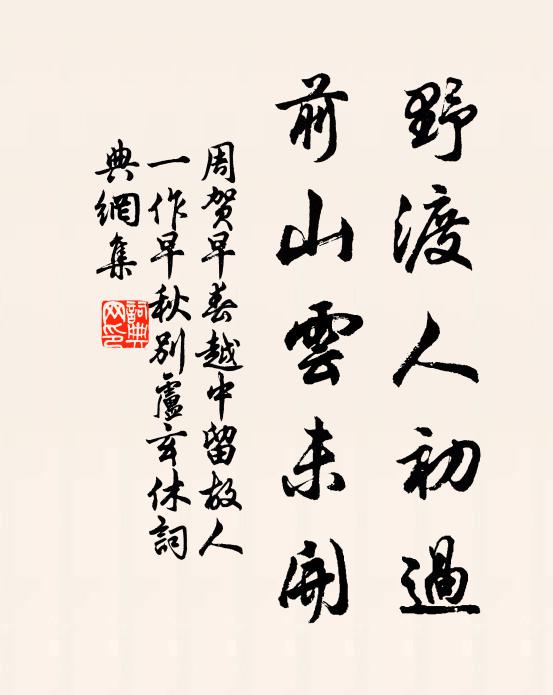 野渡人初過
前山雲未開
周賀早春越中留故人
一作早秋別盧玄休詞
典網集
詞典網印